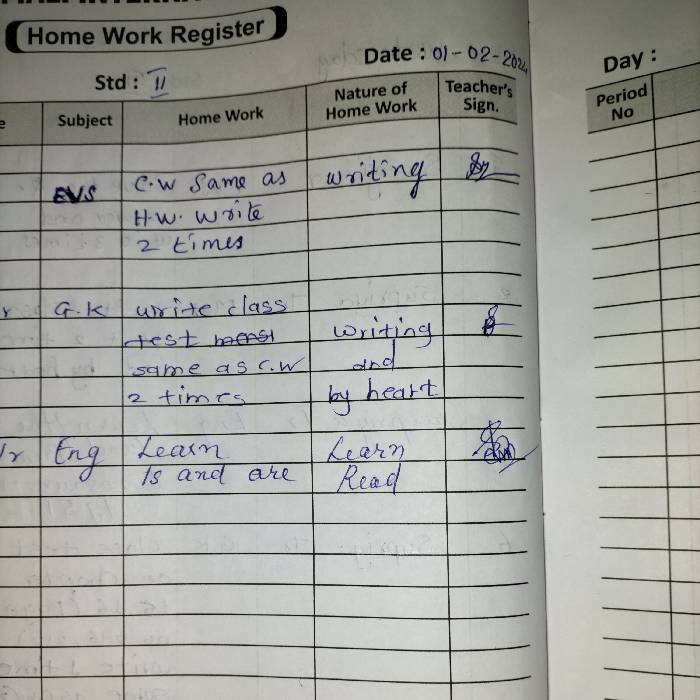 Home Work Register
Date : 01-02-2024
Day :
Std : II
Subject
Home Work
Nature of Home Work
Teacher's Sign.
Period No
EVS C.W Same as writing
H.W. write
2 times
G.K write class
test writing
same as C.W and
2 times by heart
Eng Learn Learn
Is and are Read